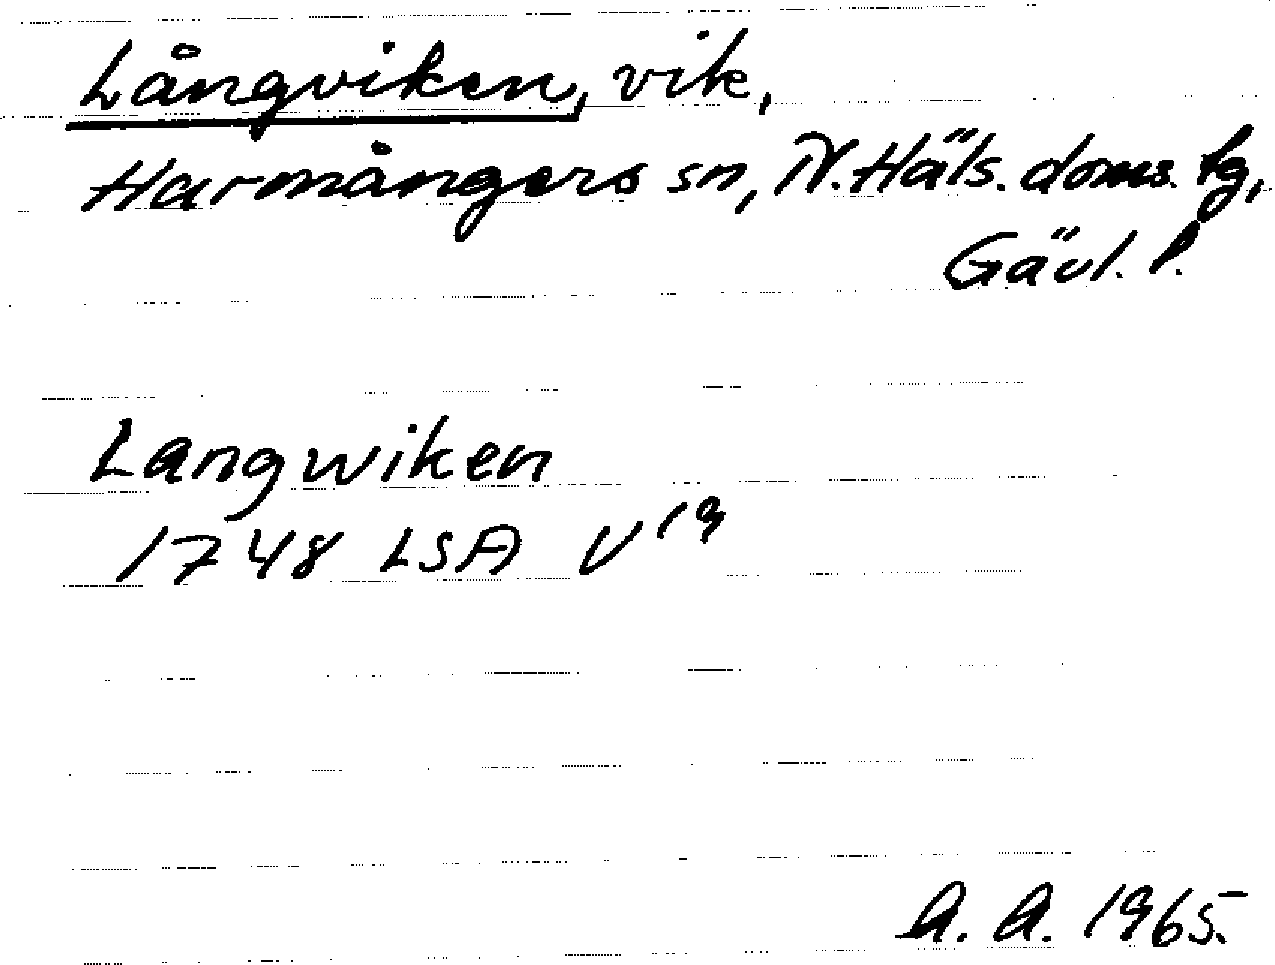 Långviken, vik,
Harmångers sn, N. Häls. doms. lg,
Gävl. l.
Langwiken
1748 LSA V 19
A. A. 1965.